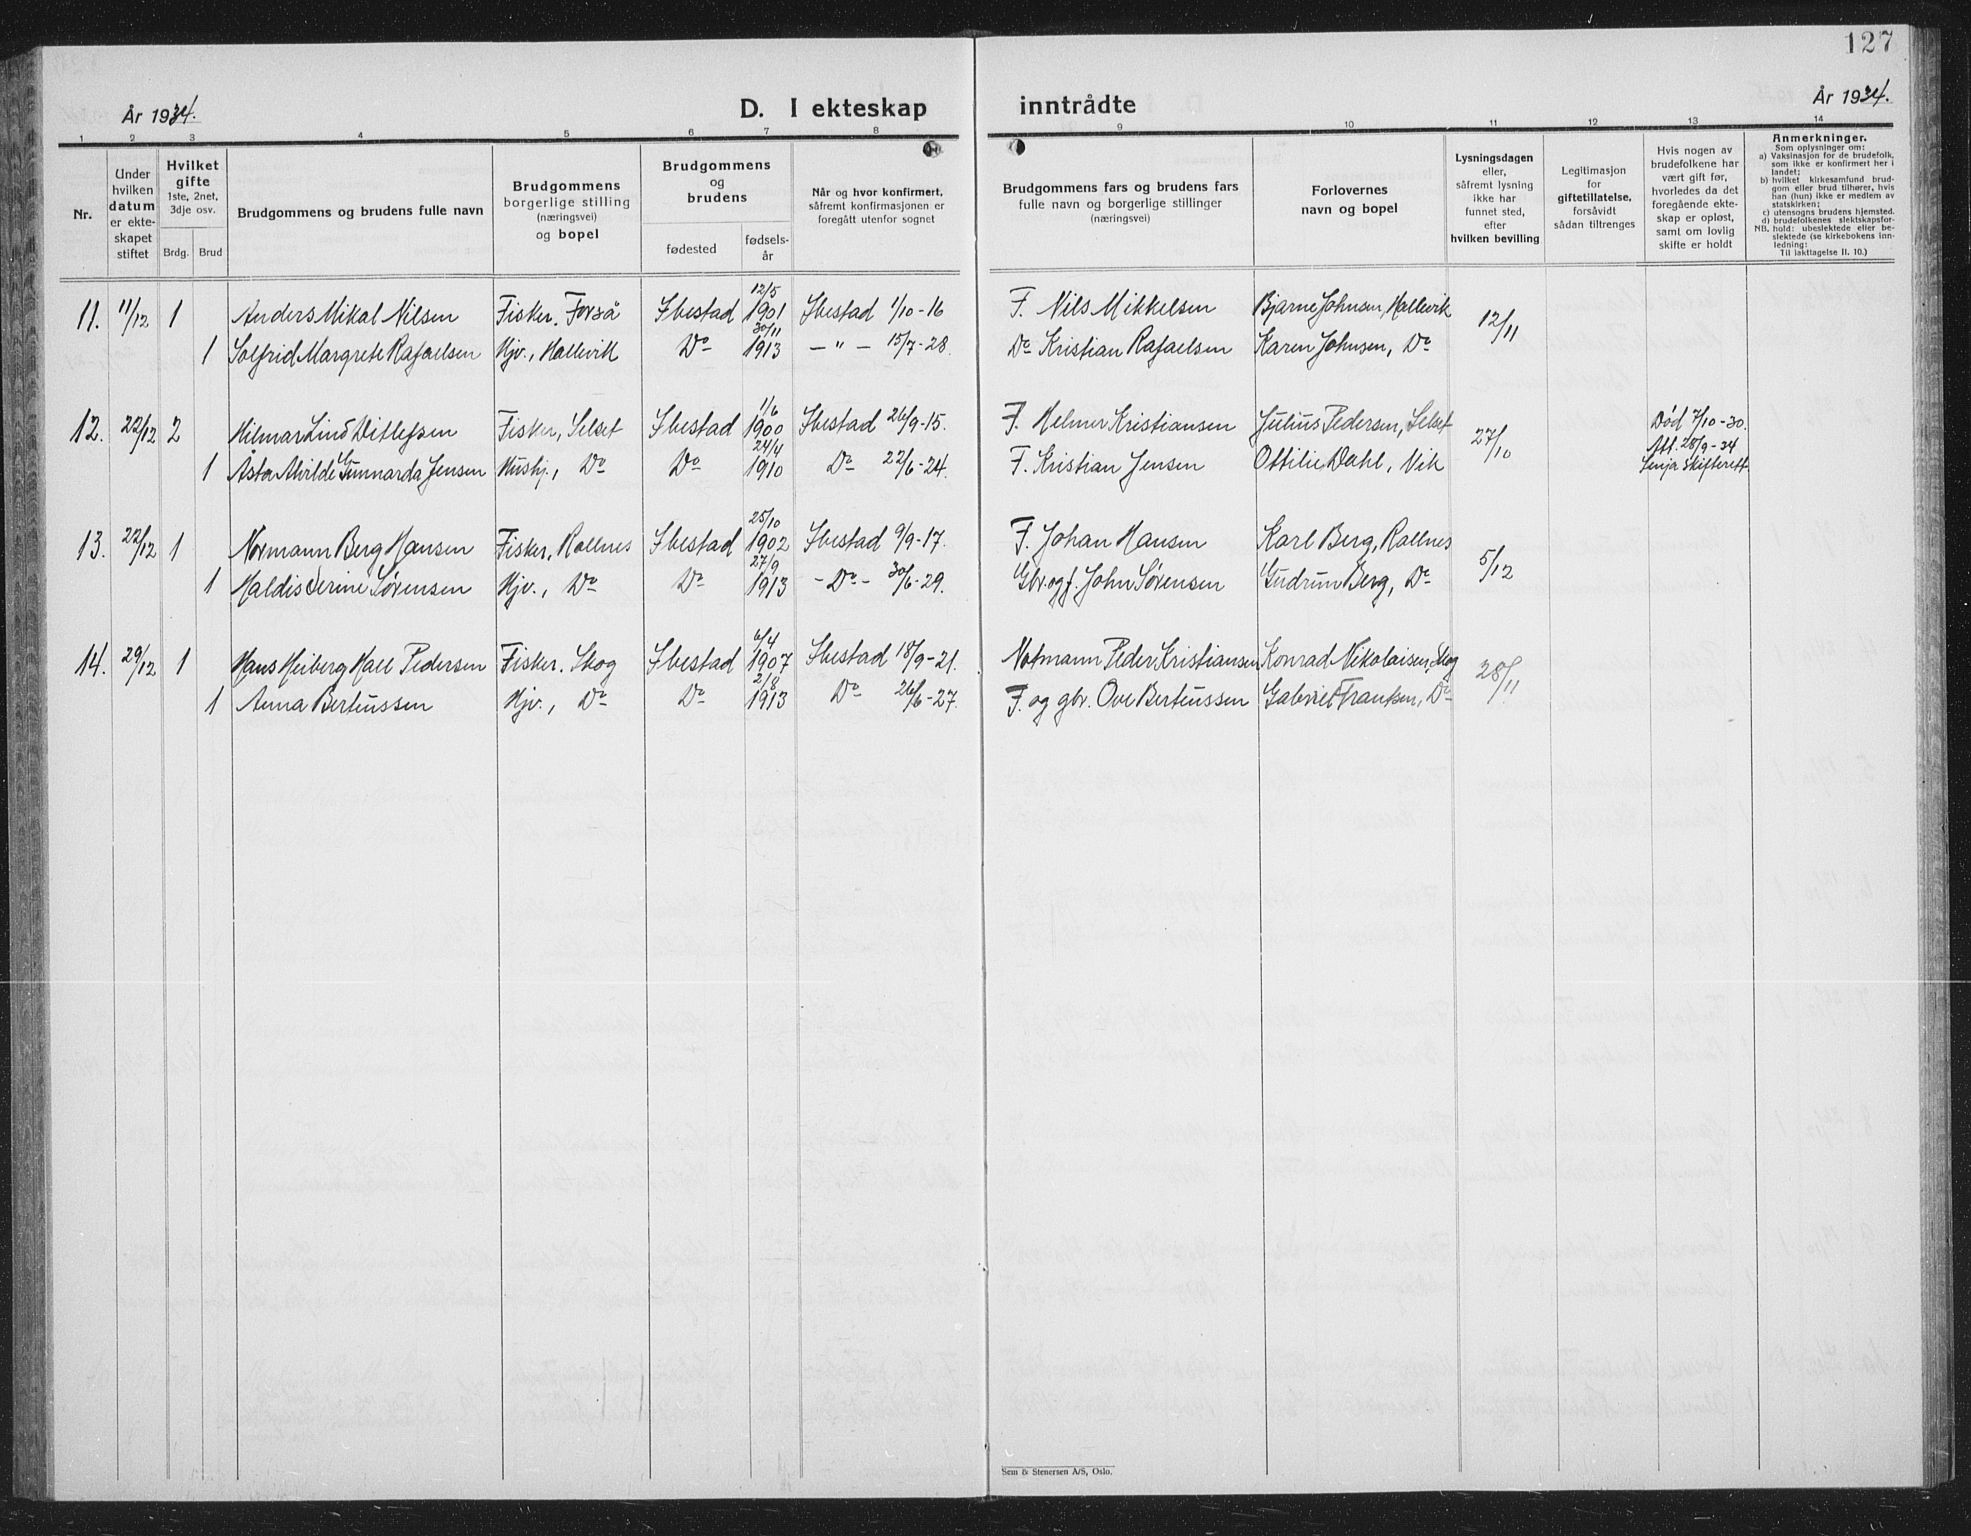 127
År 1934.
D. I ekteskap inntrådte
År 1934.
1 2 3 4 5 6 7 8 9 10 11 12 13 14
Nr.
Under hvilken datum er ekte-skapet stiftet
Hvilket gifte 1ste, 2net, 3dje osv.
Brdg. Brud
Brudgommens og brudens fulle navn
Brudgommens borgerlige stilling (næringsvei) og bopel
Brudgommens og brudens
fødested
fødsels-år
Når og hvor konfirmert, såfremt konfirmasjonen er foregått utenfor sognet
Brudgommens fars og brudens fars fulle navn og borgerlige stillinger (næringsvei)
Forlovernes navn og bopel
Lysningsdagen eller, såfremt lysning ikke har funnet sted, efter hvilken bevilling
Legitimasjon for giftetillatelse, forsåvidt sådan tiltrenges
Hvis nogen av brudefolkene har vært gift før, hvorledes da det foregående ekte-skap er opløst, samt om lovlig skifte er holdt
Anmerkninger.
Som oplysninger om:
a) Vaksinasjon for de brudefolk, som ikke er konfirmert her i landet;
b) hvilket kirkesamfund brud-gom eller brud tilhører, hvis han (hun) ikke er medlem av statskirken;
c) utensogns brudens hjemsted.
d) brudefolkenes slektskapsfor-hold: ubeslektede eller be-slektede (se kirkebokens inn-ledning:
NB.
Til iakttagelse II. 10.)
11. 11/12 1 Anders Mikal Nilsen Fisker. Forså Ibestad 12/5 1901 Ibestad 1/10-16 F. Nils Mikkelsen Bjarne Johnsen, Hallevik 12/11
1 Solfrid Margrete Rafaelsen Hjv., Hallevik Do 30/11 1913 - " - 15/7-28. Do Kristian Rafaelsen Karen Johnsen, Do
12. 22/12 2 Hilmar Lind Ditlefsen Fisker, Selset Ibestad 1/6 1900 Ibestad 26/9-15. F. Helmer Kristiansen Julius Pedersen, Selset 27/10 Død 7/10-30.
1 Åsta Alvilde Gunnarda Jensen Hushj., Do Do 24/4 1910 Do 22/6-24. F. Kristian Jensen Ottilie Dahl, Vik Att. 28/9-34
Senja Skifterett.
13. 22/12 1 Normann Berg Hansen Fisker, Rollnes Ibestad 25/10 1902 Ibestad 9/9-17. F. Johan Hansen Karl Berg, Rollnes 5/12
1 Haldis Serine Sørensen Hjv., Do Do 27/9 1913 - Do - 30/6-29. Gbr. og f. John Sørensen Gudrun Berg, Do
14. 29/12 1 Hans Heiberg Hall Pedersen Fisker. Skog Ibestad 6/4 1907 Ibestad 18/9-21. Notmann Peder Kristiansen Konrad Nikolaisen, Skog 28/11
1 Anna Berteussen Hjv., Do Do 2/8 1913 Do 26/6-27. F. og gbr. Ove Berteussen Gabriel Frantsen, Do
Sem & Stenersen A/S, Oslo.